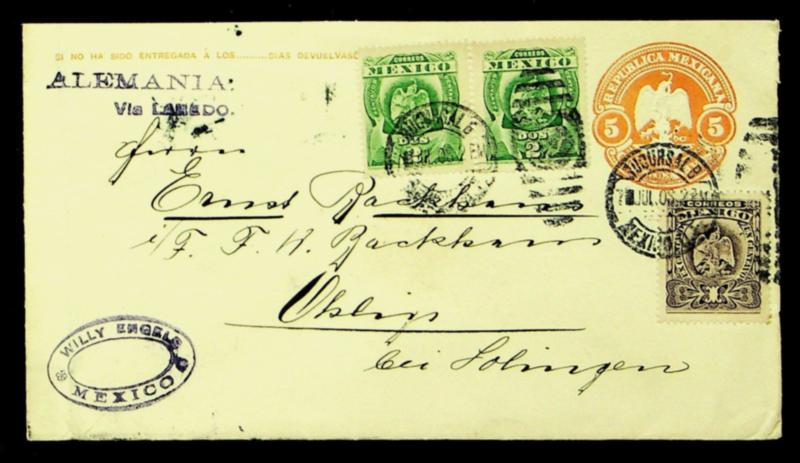 SI NO HA SIDO ENTREGADA A LOS..........DIAS DEVUELVASE
ALEMANIA.
Via LAREDO.
CORREOS
MEXICO
DOS
CORREOS
MEXICO
DOS
2
REPUBLICA MEXICANA
5 5
SUCURSAL B
SUCURSAL B
JUL
MEXICO
CORREOS
MEXICO
UN CENTAVO
1
Herrn
Ernst Backhaus
i/F. F. R. Backhaus
Ohligs
bei Solingen
WILLY ENGELS
MEXICO